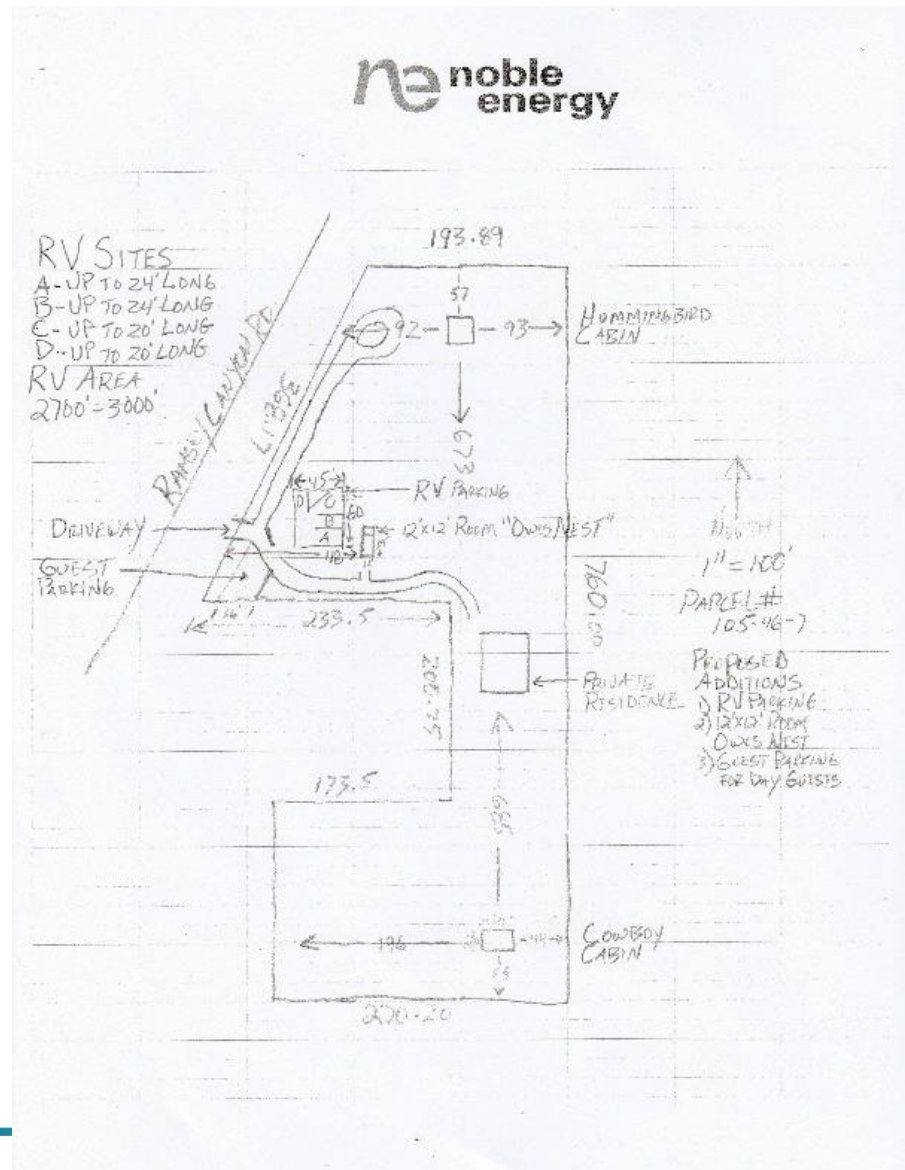 ne noble
energy
RV SITES
A-UP TO 24' LONG
B-UP TO 24' LONG
C-UP TO 20' LONG
D-UP TO 20' LONG
RV AREA
2700'-3000'
RAMSEY CANYON RD
193.89
57
92
93
HUMMINGBIRD
CABIN
673
45'
D
C
B
A
60
RV PARKING
12'x12' ROOM "OWLS NEST"
DRIVEWAY
GUEST
PARKING
233.5
760.00
NORTH
1" = 100'
PARCEL #
105-46-7
PROPOSED
ADDITIONS
1) RV PARKING
2) 12'x12' ROOM
OWLS NEST
3) GUEST PARKING
FOR DAY GUESTS
PRIVATE
RESIDENCE
173.5
685
COWBOY
CABIN
270.20